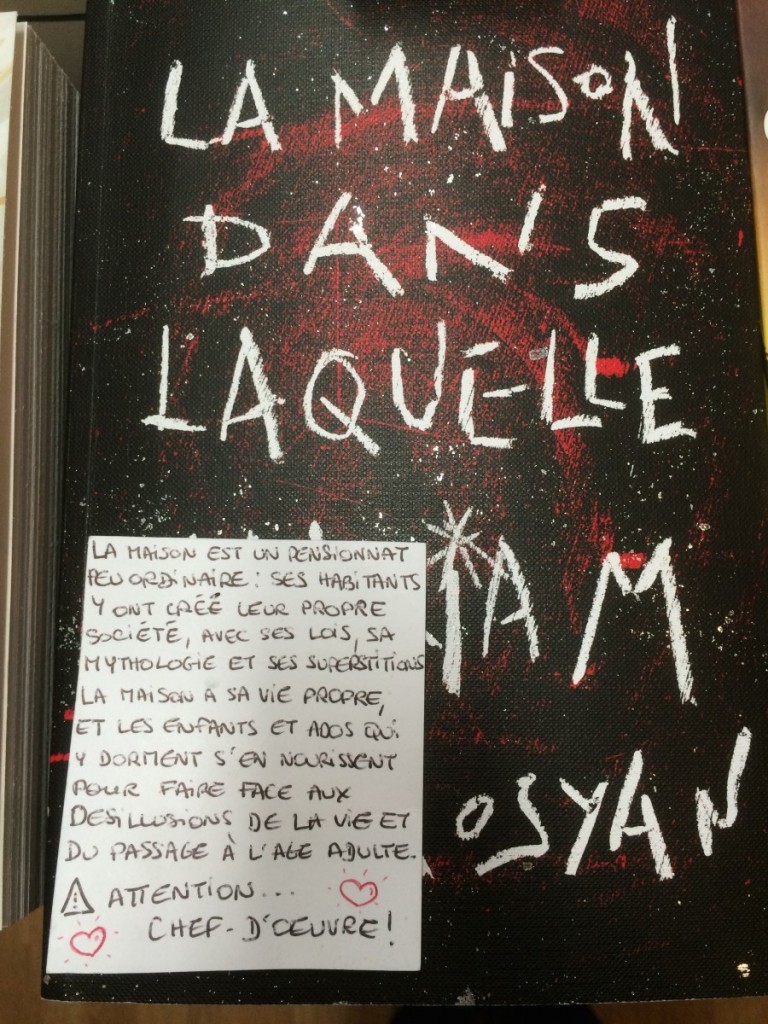 LA MAISON
DANS
LAQUELLE
LA MAISON EST UN PENSIONNAT
PEU ORDINAIRE : SES HABITANTS
Y ONT CRÉÉ LEUR PROPRE
SOCIÉTÉ, AVEC SES LOIS, SA
MYTHOLOGIE ET SES SUPERSTITIONS
LA MAISON A SA VIE PROPRE,
ET LES ENFANTS ET ADOS QUI
Y DORMENT S'EN NOURISSENT
POUR FAIRE FACE AUX
DESILLUSIONS DE LA VIE ET
DU PASSAGE À L'AGE ADULTE.
⚠ ATTENTION...
CHEF-D'OEUVRE !
IAM
OSYAN